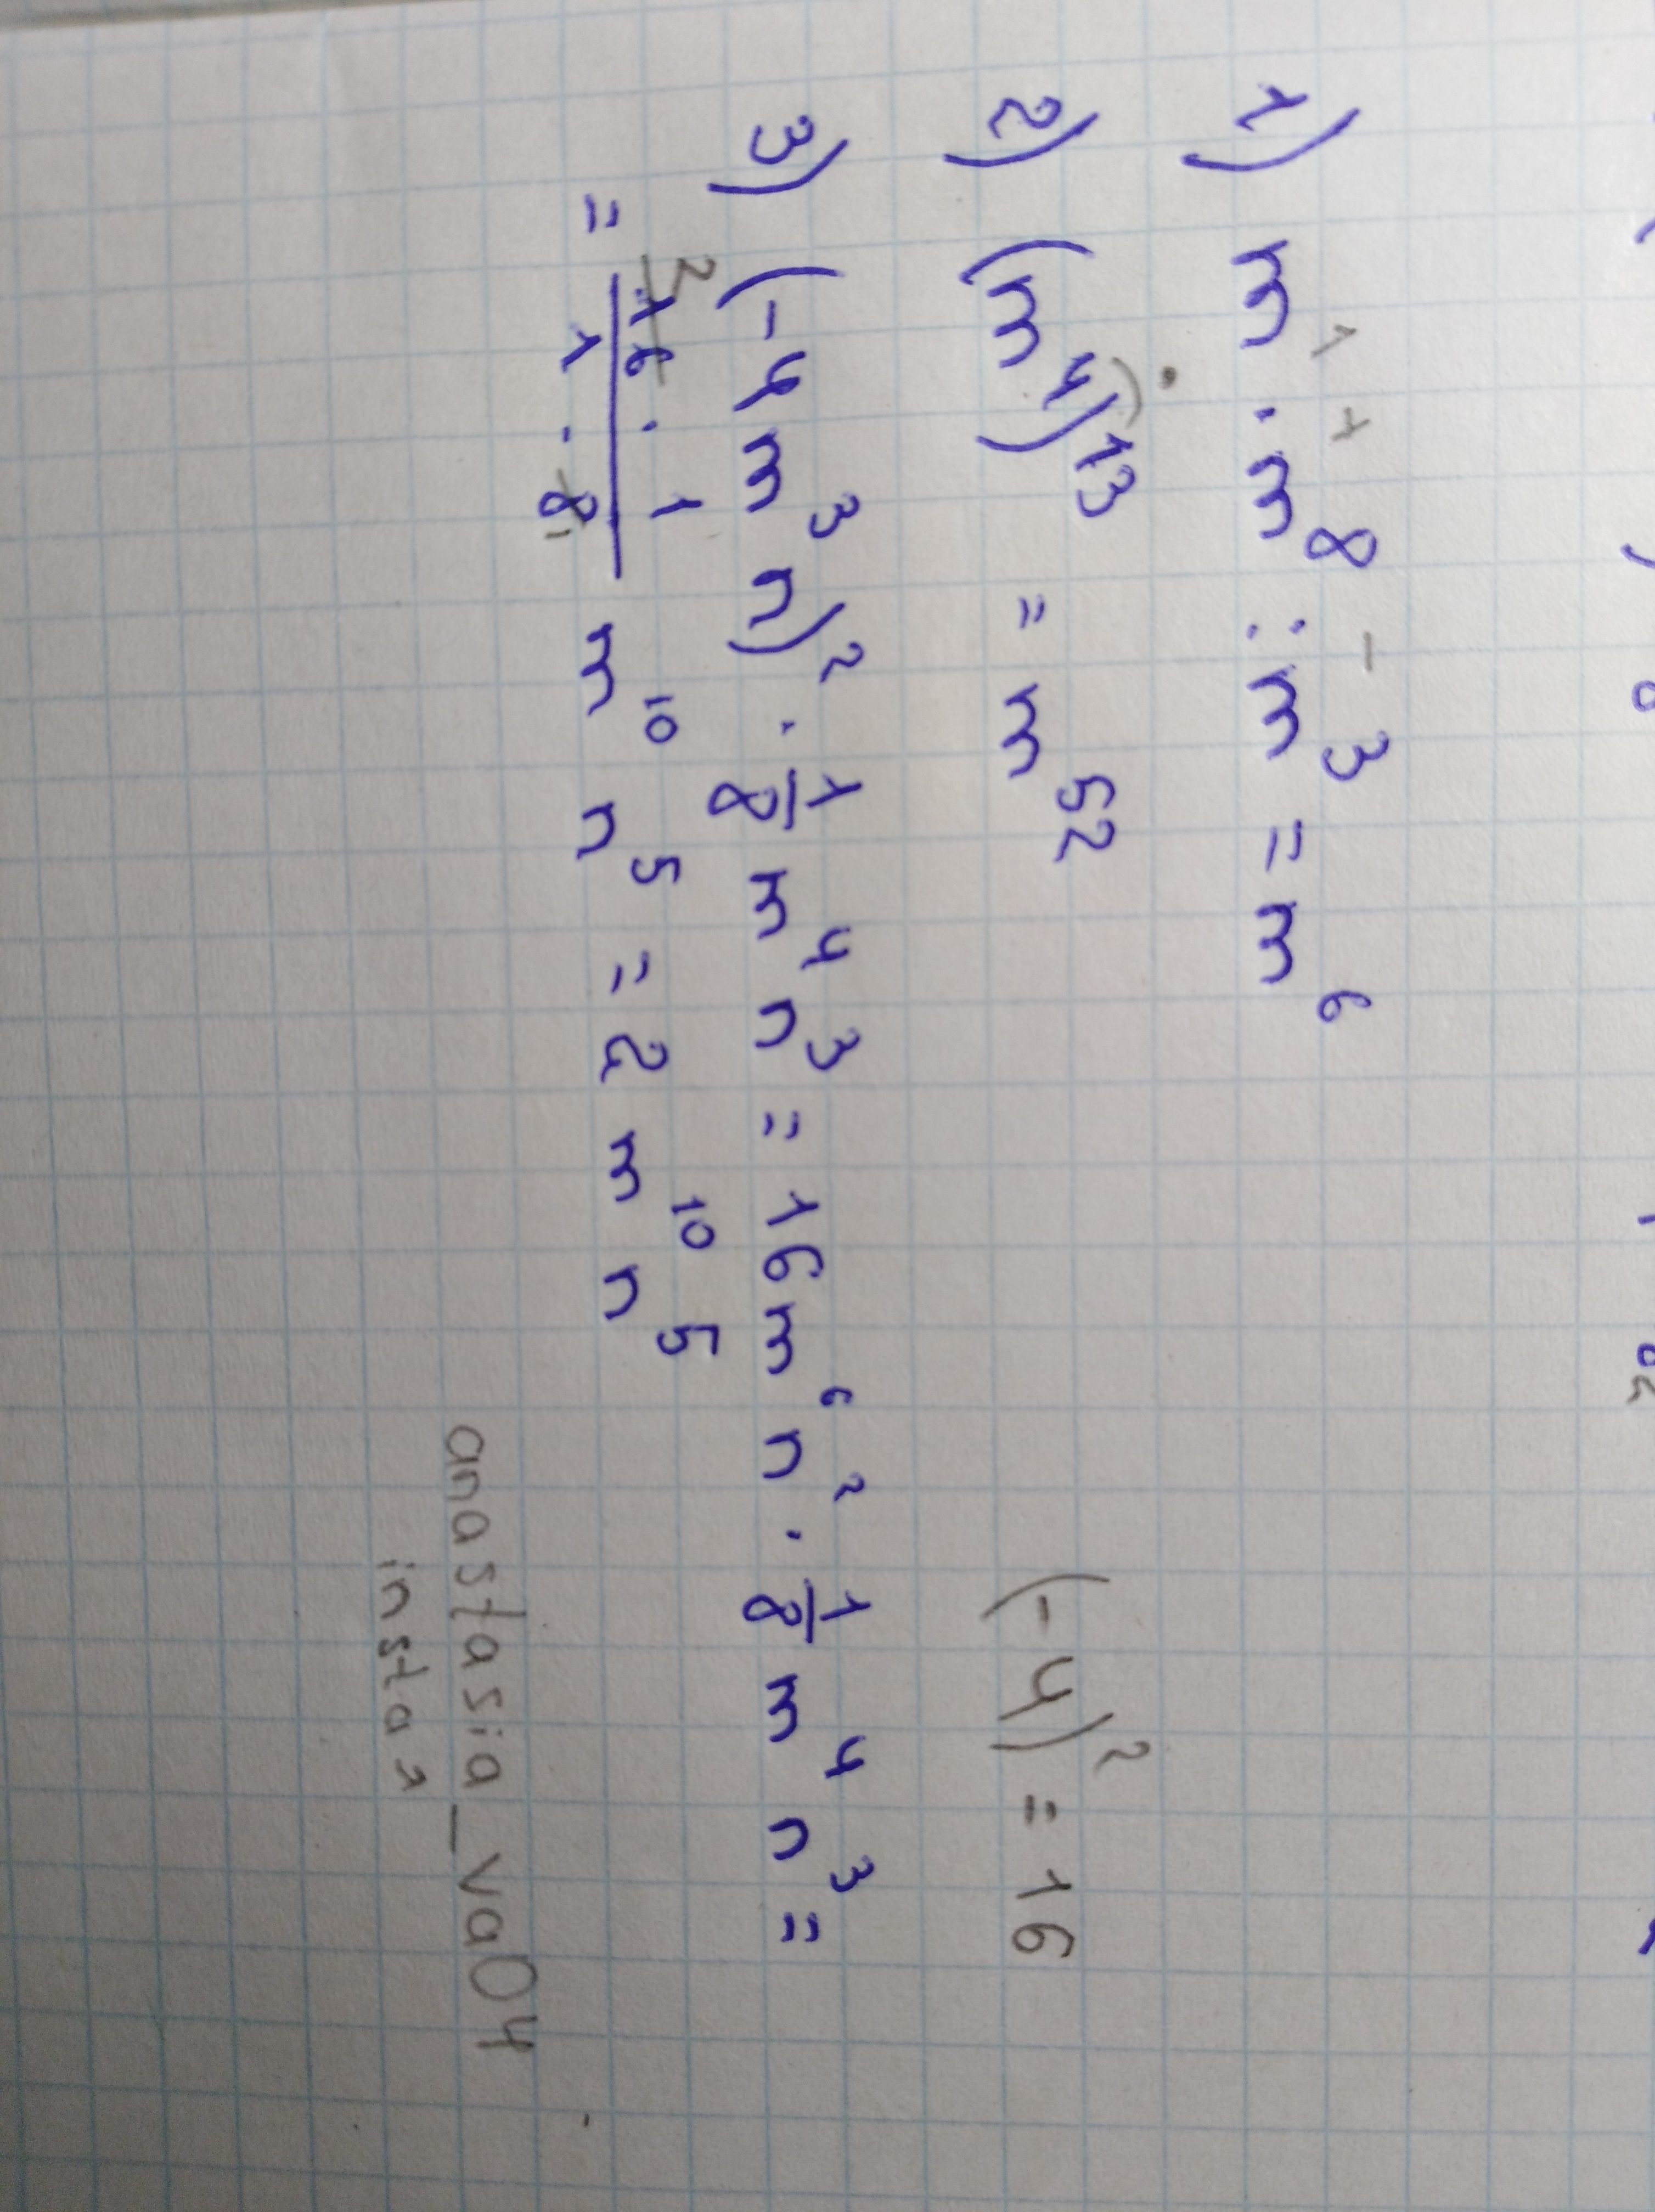 1) m¹ · m⁺⁸ : m⁻³ = m⁶
2) (m⁴)¹³ = m⁵²
(-4)² = 16
3) (-4m³n)² · 1/8 m⁴ n³ = 16m⁶n² · 1/8 m⁴ n³ =
= 16 · 1 / 1 · 8 m¹⁰ n⁵ = 2 m¹⁰ n⁵
anastasia_va04
insta